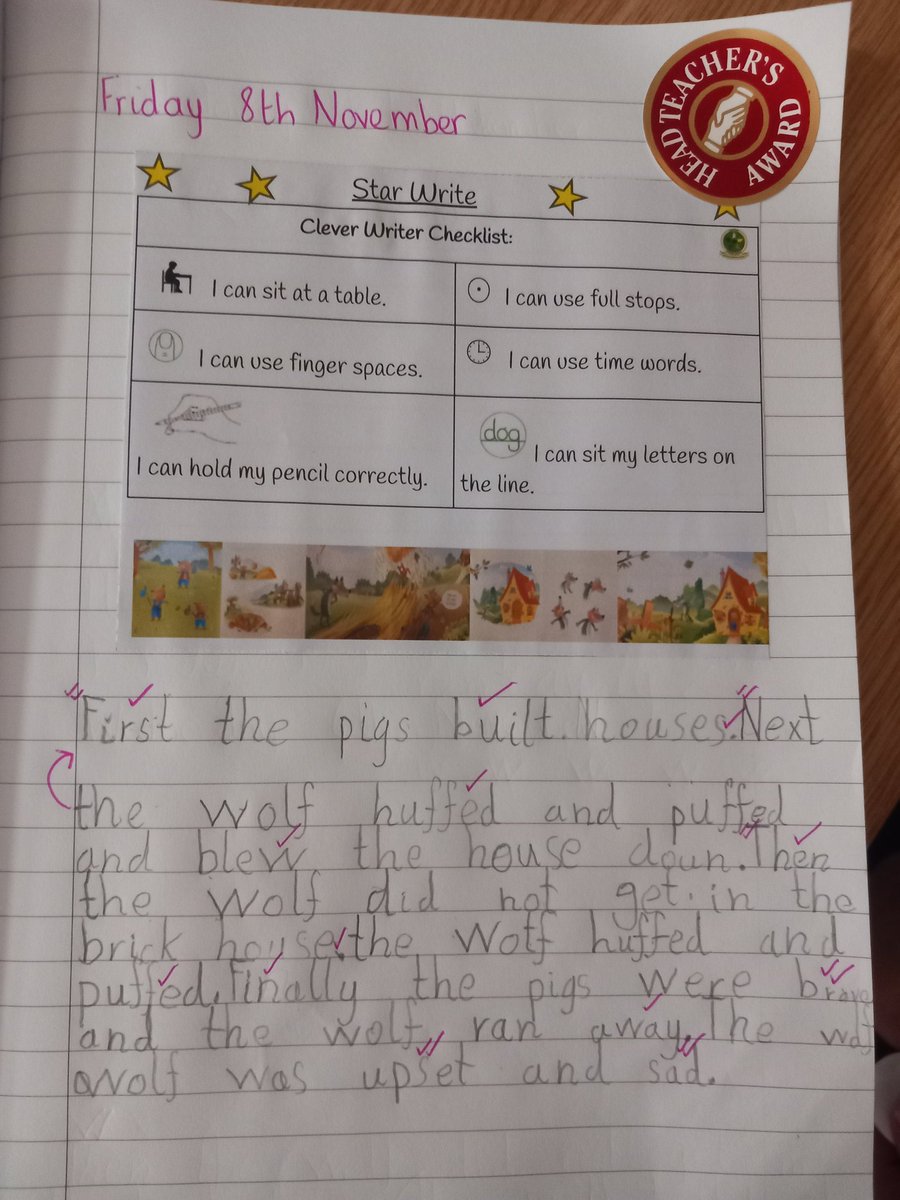 Friday 8th November
HEAD TEACHER'S AWARD
Star Write
Clever Writer Checklist:
I can sit at a table.
I can use full stops.
I can use finger spaces.
I can use time words.
I can hold my pencil correctly.
dog I can sit my letters on
the line.
First the pigs built. houses. Next
the wolf huffed and puffed
and blew the house doun. Then
the wolf did not get. in the
brick house. the wolf huffed and
puffed. Finally the pigs were brave
and the wolf ran away. The wolf
wolf was upset and sad.